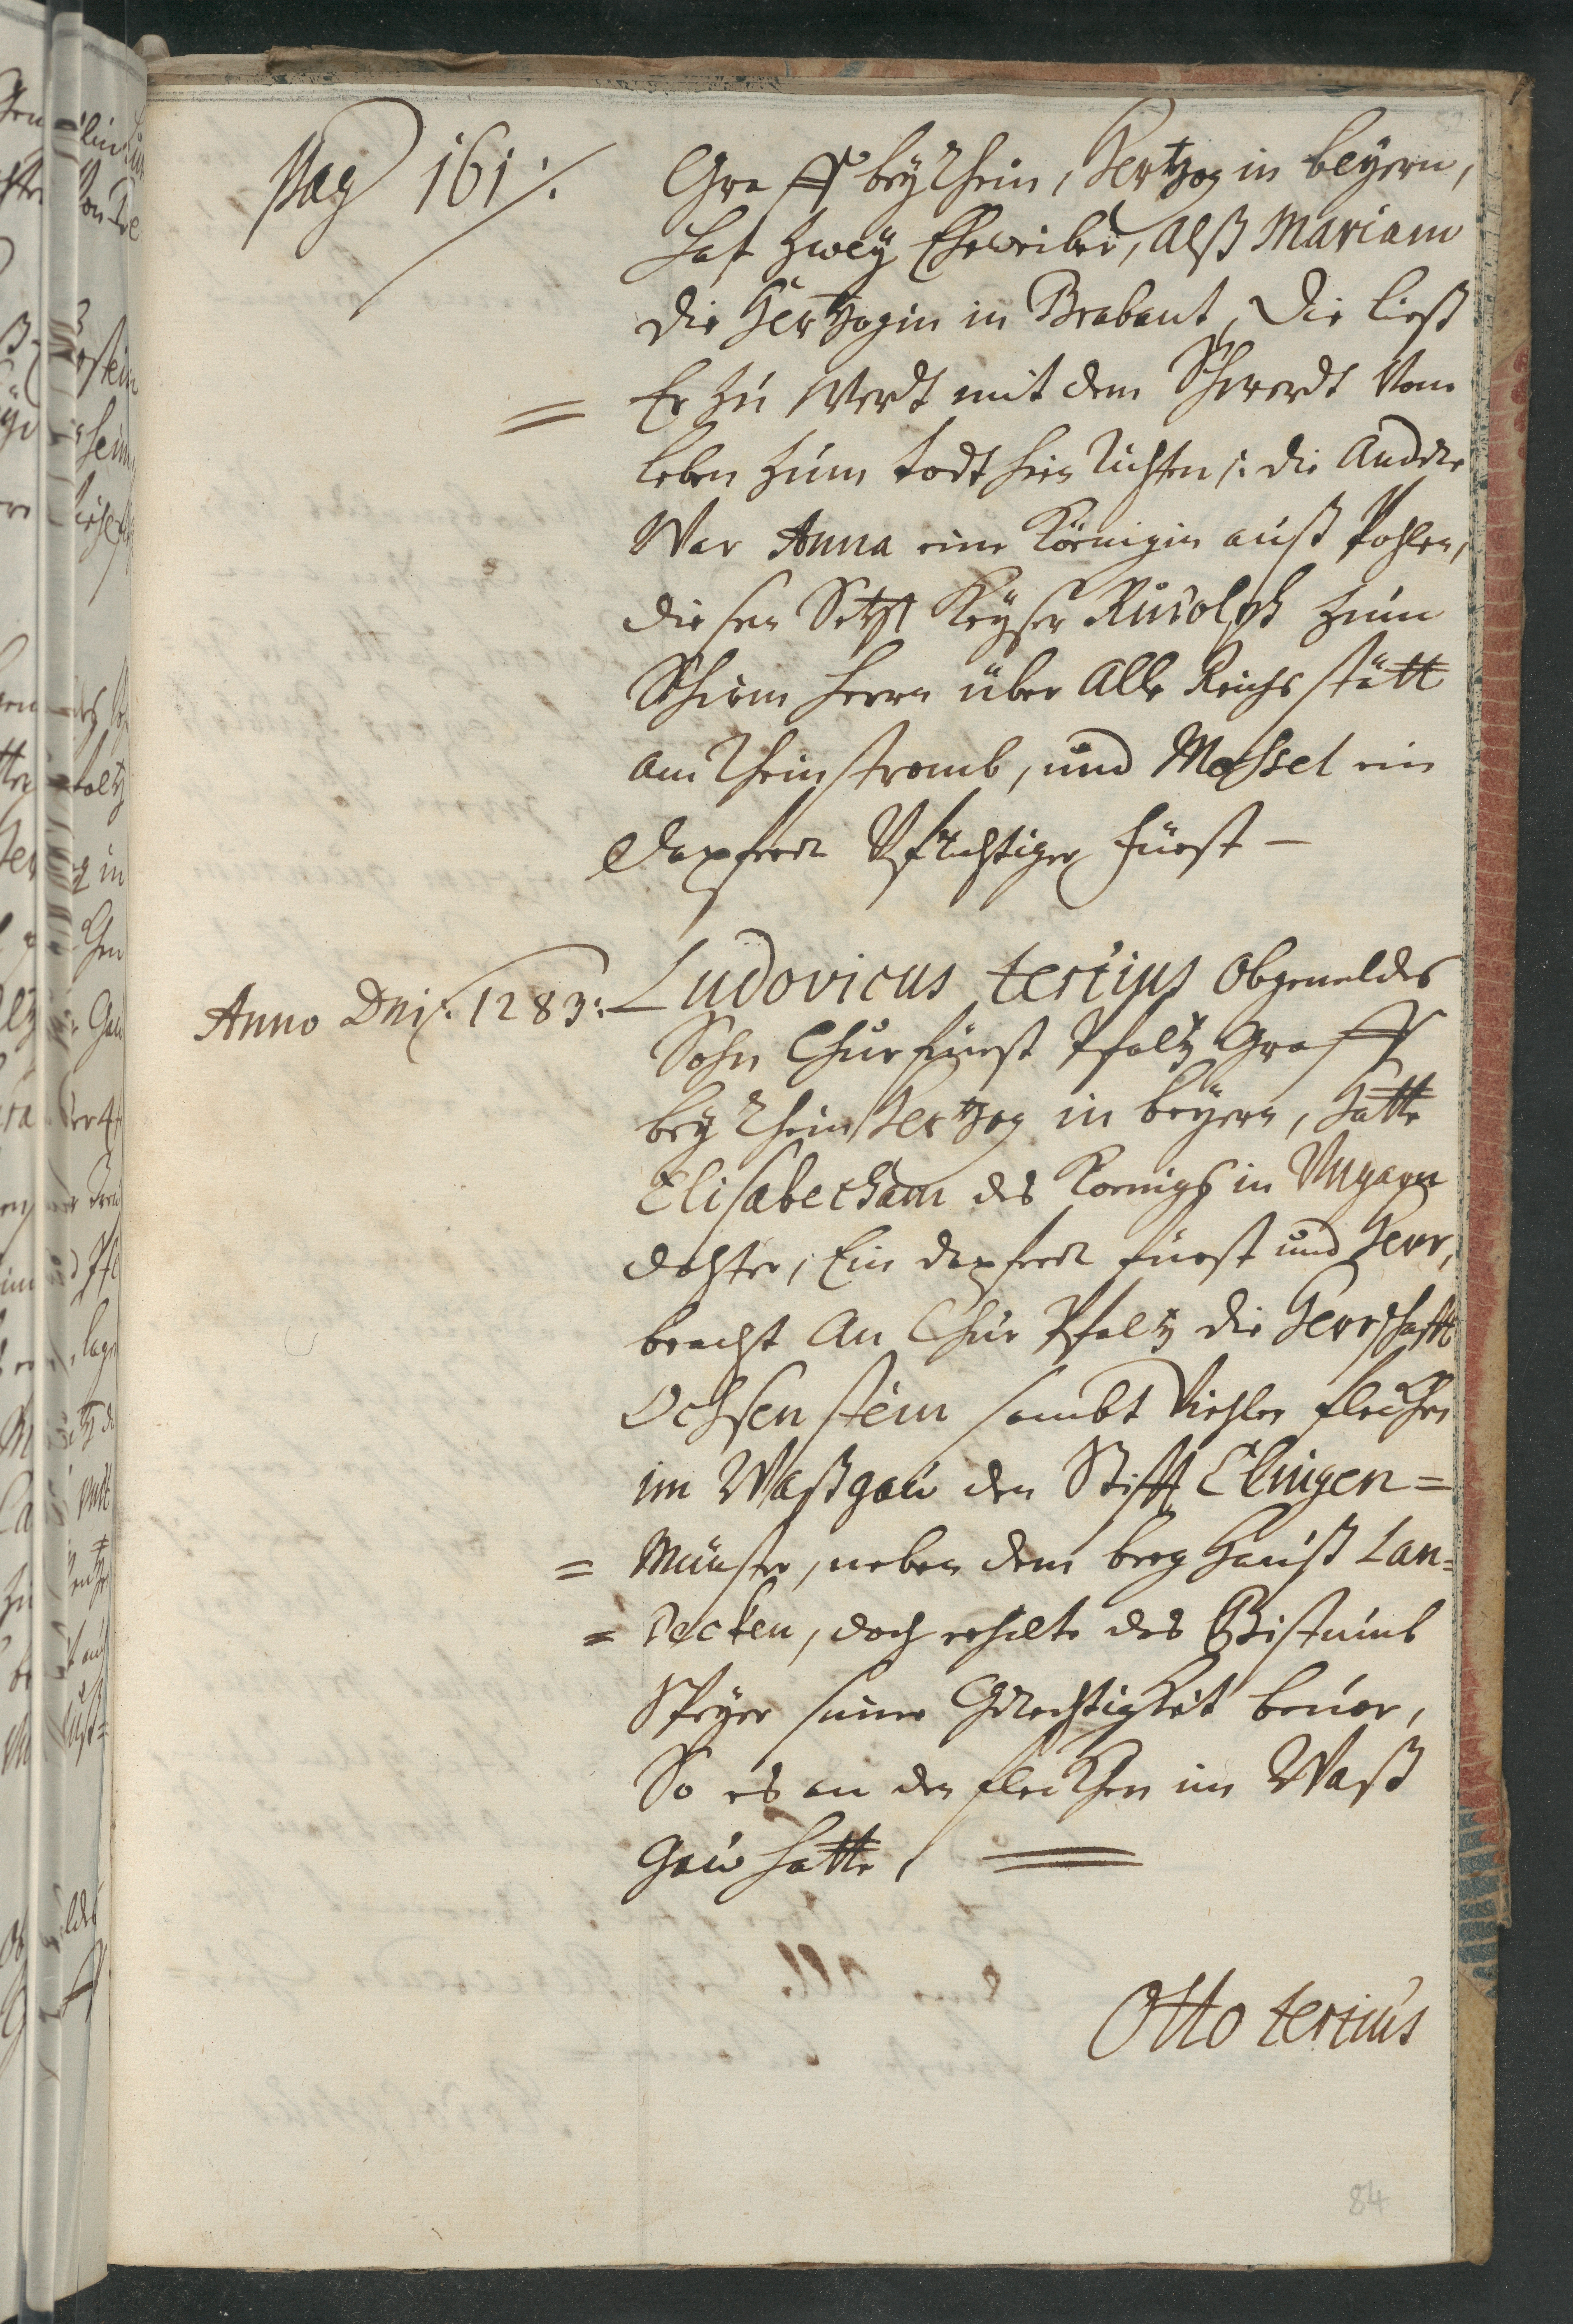 Pag 161 ⁒
Graff beÿ Rhein, Hertzog in beÿern,
hat zweÿ Eheweiber, Alß Mariam
die Hertzogin in Brabant, Die ließ
= Er zu Werdt mit dem Schwerdt Vom
leben zum todt hin richten ⁒ die Andere
War Anna eine Königin auß Pohlen,
diesen Setzt Keÿser Rudolph zum
Schirm herrn über Alle Reichs stätt
am Rheinstromb, und Mossel ein
Dapferer Fürst —
Anno Dni: 1283: Ludovicus tertius Obgemeldes
Sohn Churfürst Pfaltz Graff
beÿ Rhein Hertzog in beÿern, hatte
Elisabetham des Koenigß in Vngarn
dochter, Ein dapferer fürst und Herr,
bracht An Chur Pfaltz die Herrschafft
Ochsenstein sambt Viehlen flecken
im Waßgaw den Stifft Clingen=
= Münster, neben dem berg Hauß Lan=
= decken, doch erhielte das Bistumb
Speÿer seine Gerechtigkeit beuor,
So es an den flecken im Waß
Gaw hatte, =
Otto tertius
84